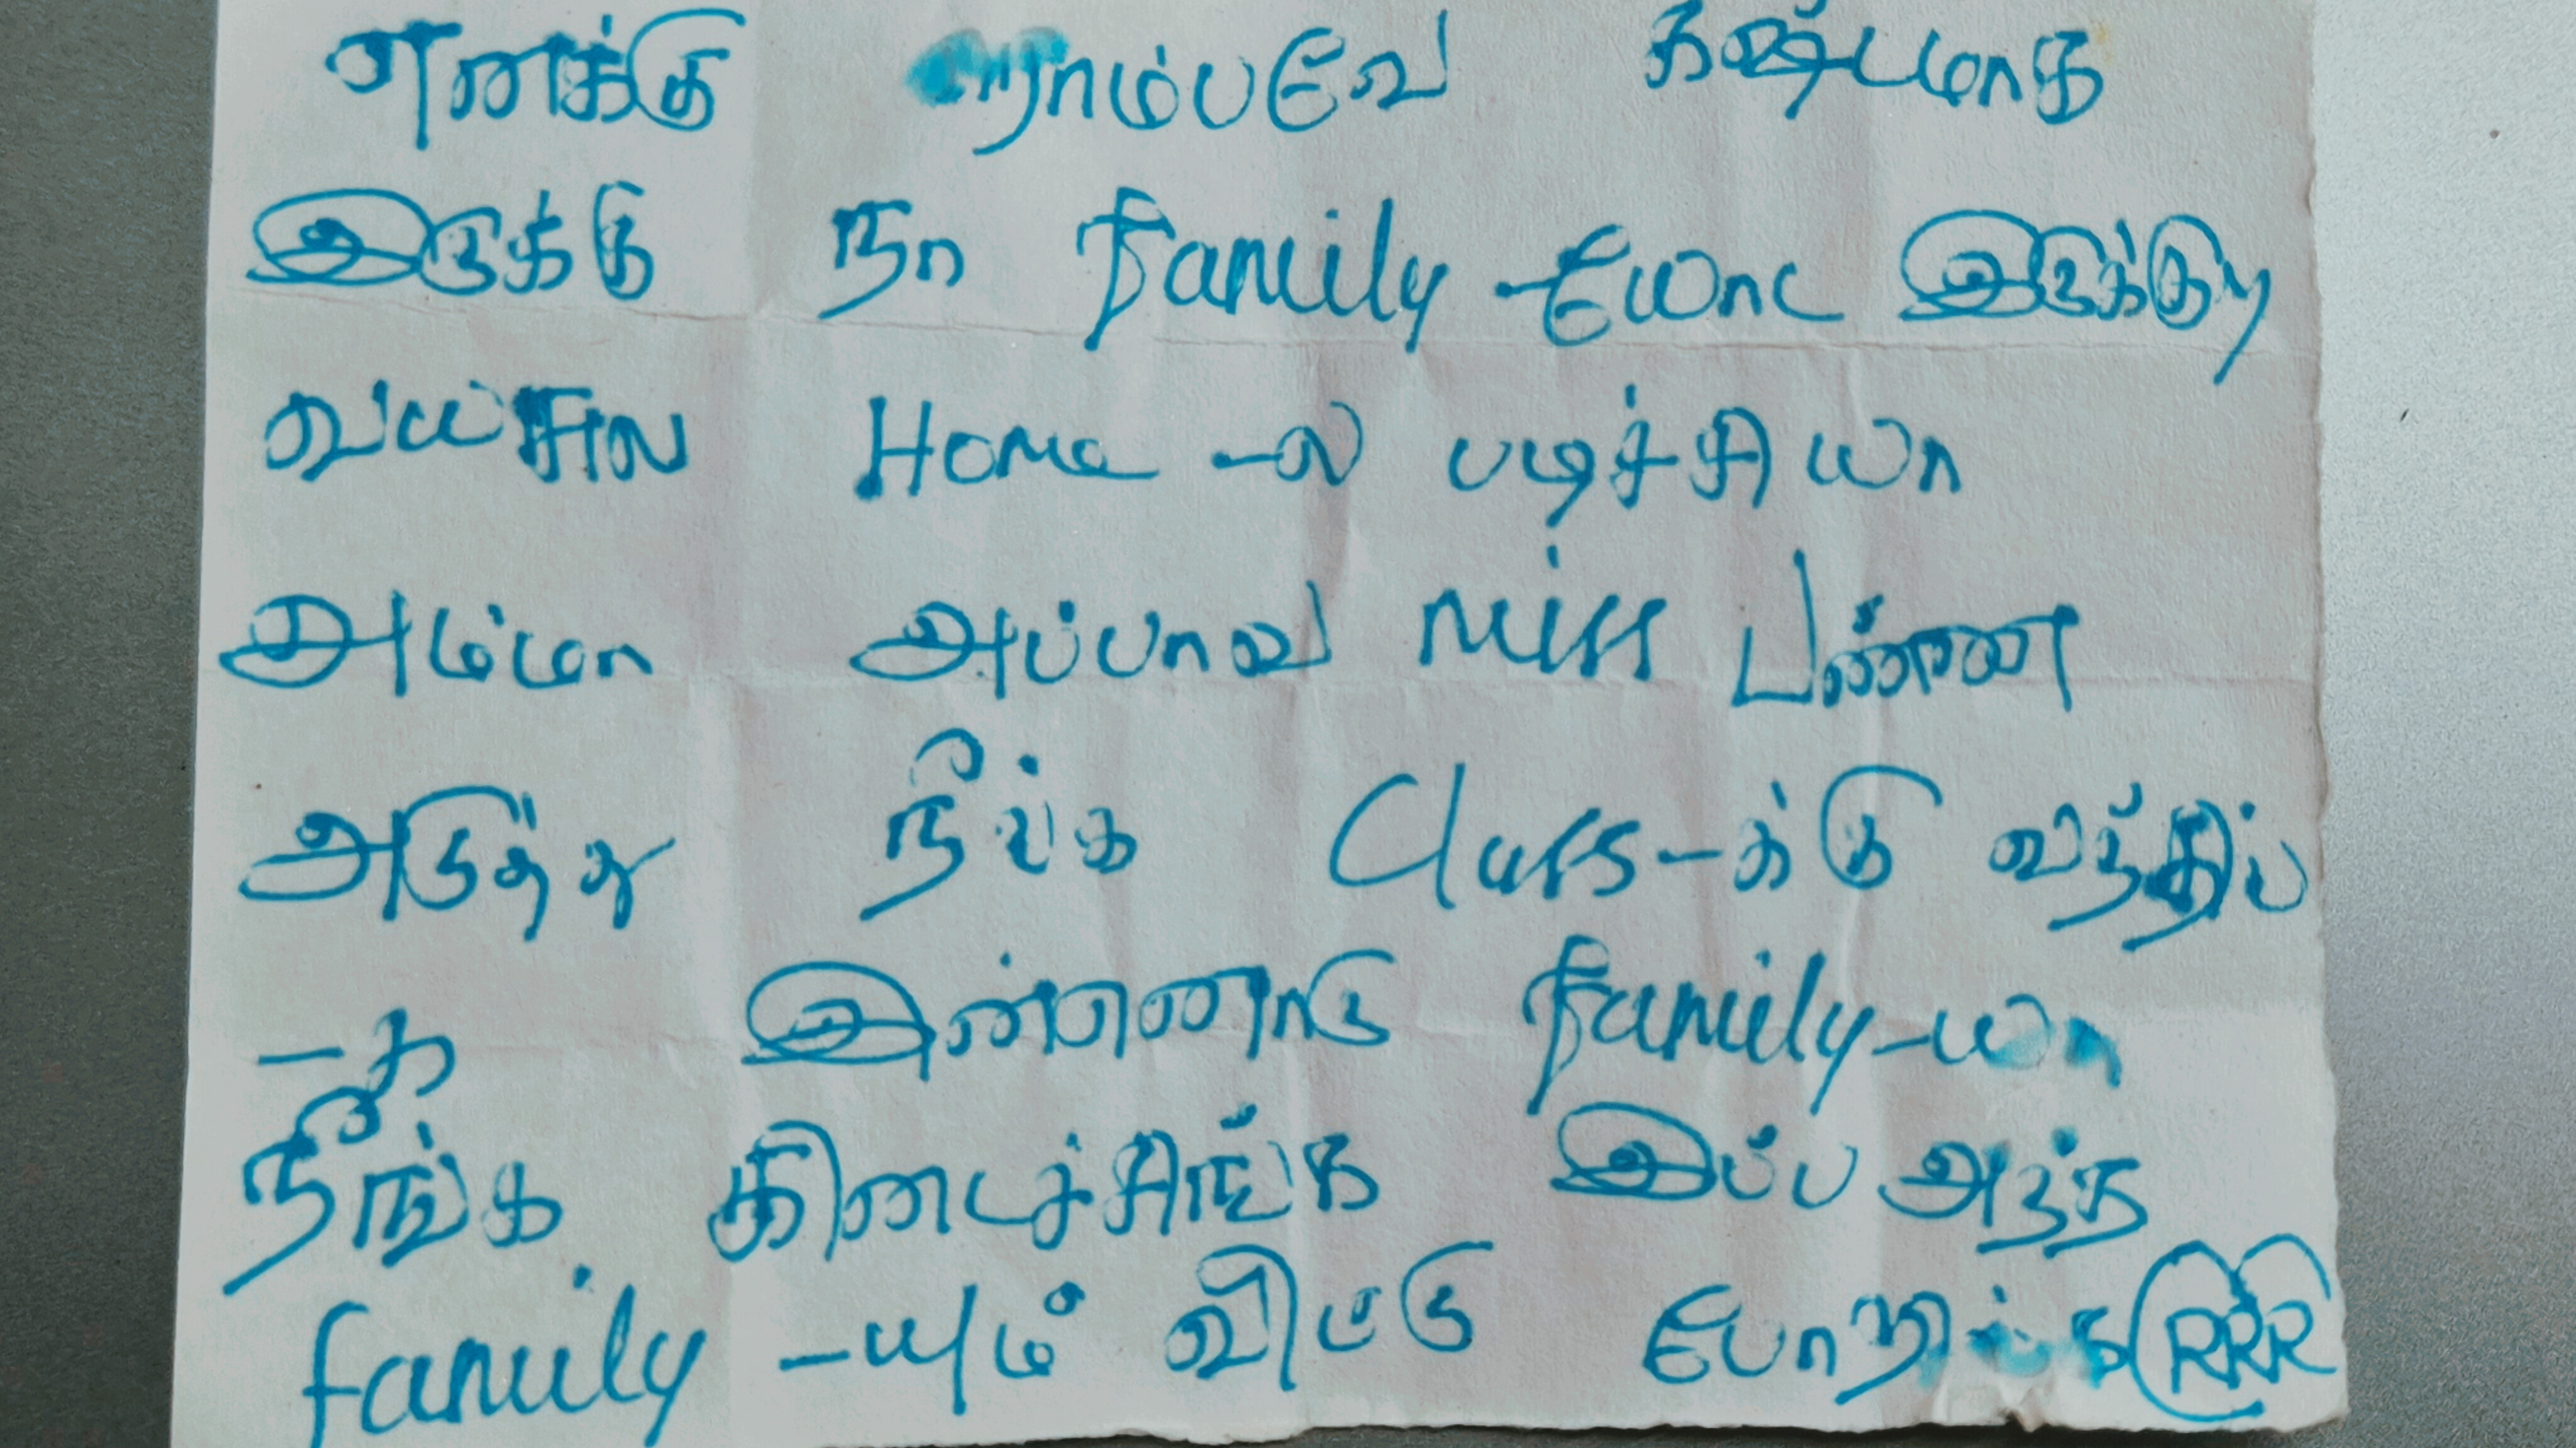 எனக்கு ரொம்பவே கஷ்டமாக
இருக்கு நா family -யோட இருக்குற
வயசுல Home -ல படிச்சியா
அம்மா அப்பாவ miss பண்ண
அடுத்து நீங்க Class-க்கு வந்திப்
-த இன்னொரு family-யா
நீங்க கிடைச்சிங்க இப்ப அந்த
family -யும் விட்டு போறிங்க RRR